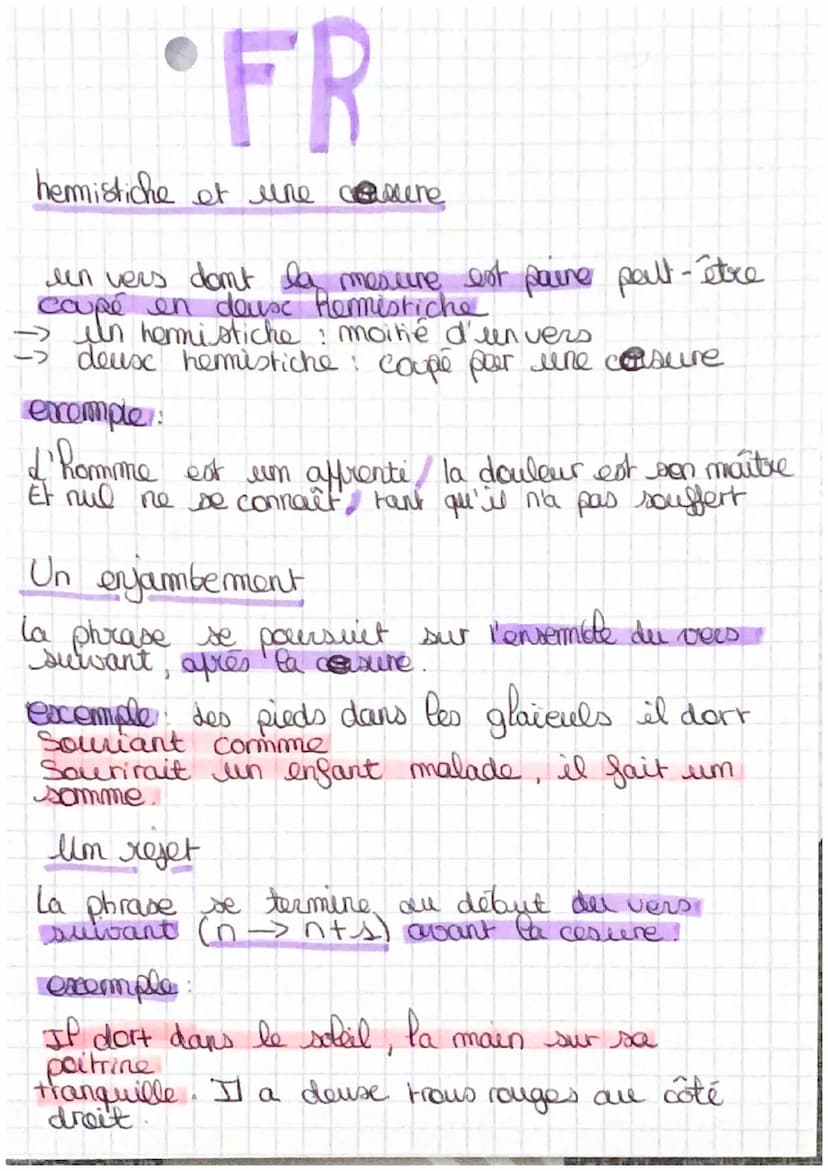 FR
hemistiche et une cesure
un vers dont la mesure est paire peut-être
coupé en deux hemistiche
→ un hemistiche : moitié d'un vers
→ deux hemistiche : coupé par une cesure
exemple :
L'homme est um affrenti / la douleur est son maître
Et nul ne se connaît / tant qu'il n'a pas souffert
Un enjambement
La phrase se poursuit sur l'ensemble du vers
suivant, après la cesure.
excemple : Les pieds dans les glaïeuls il dort
Souriant comme
Sourirait un enfant malade, il fait um
somme.
Um rejet
La phrase se termine au début du vers
suivant (n → n+1) avant la cesure.
exemple :
Il dort dans le soleil, la main sur sa
poitrine
tranquille. Il a deuse trous rouges au côté
droit.